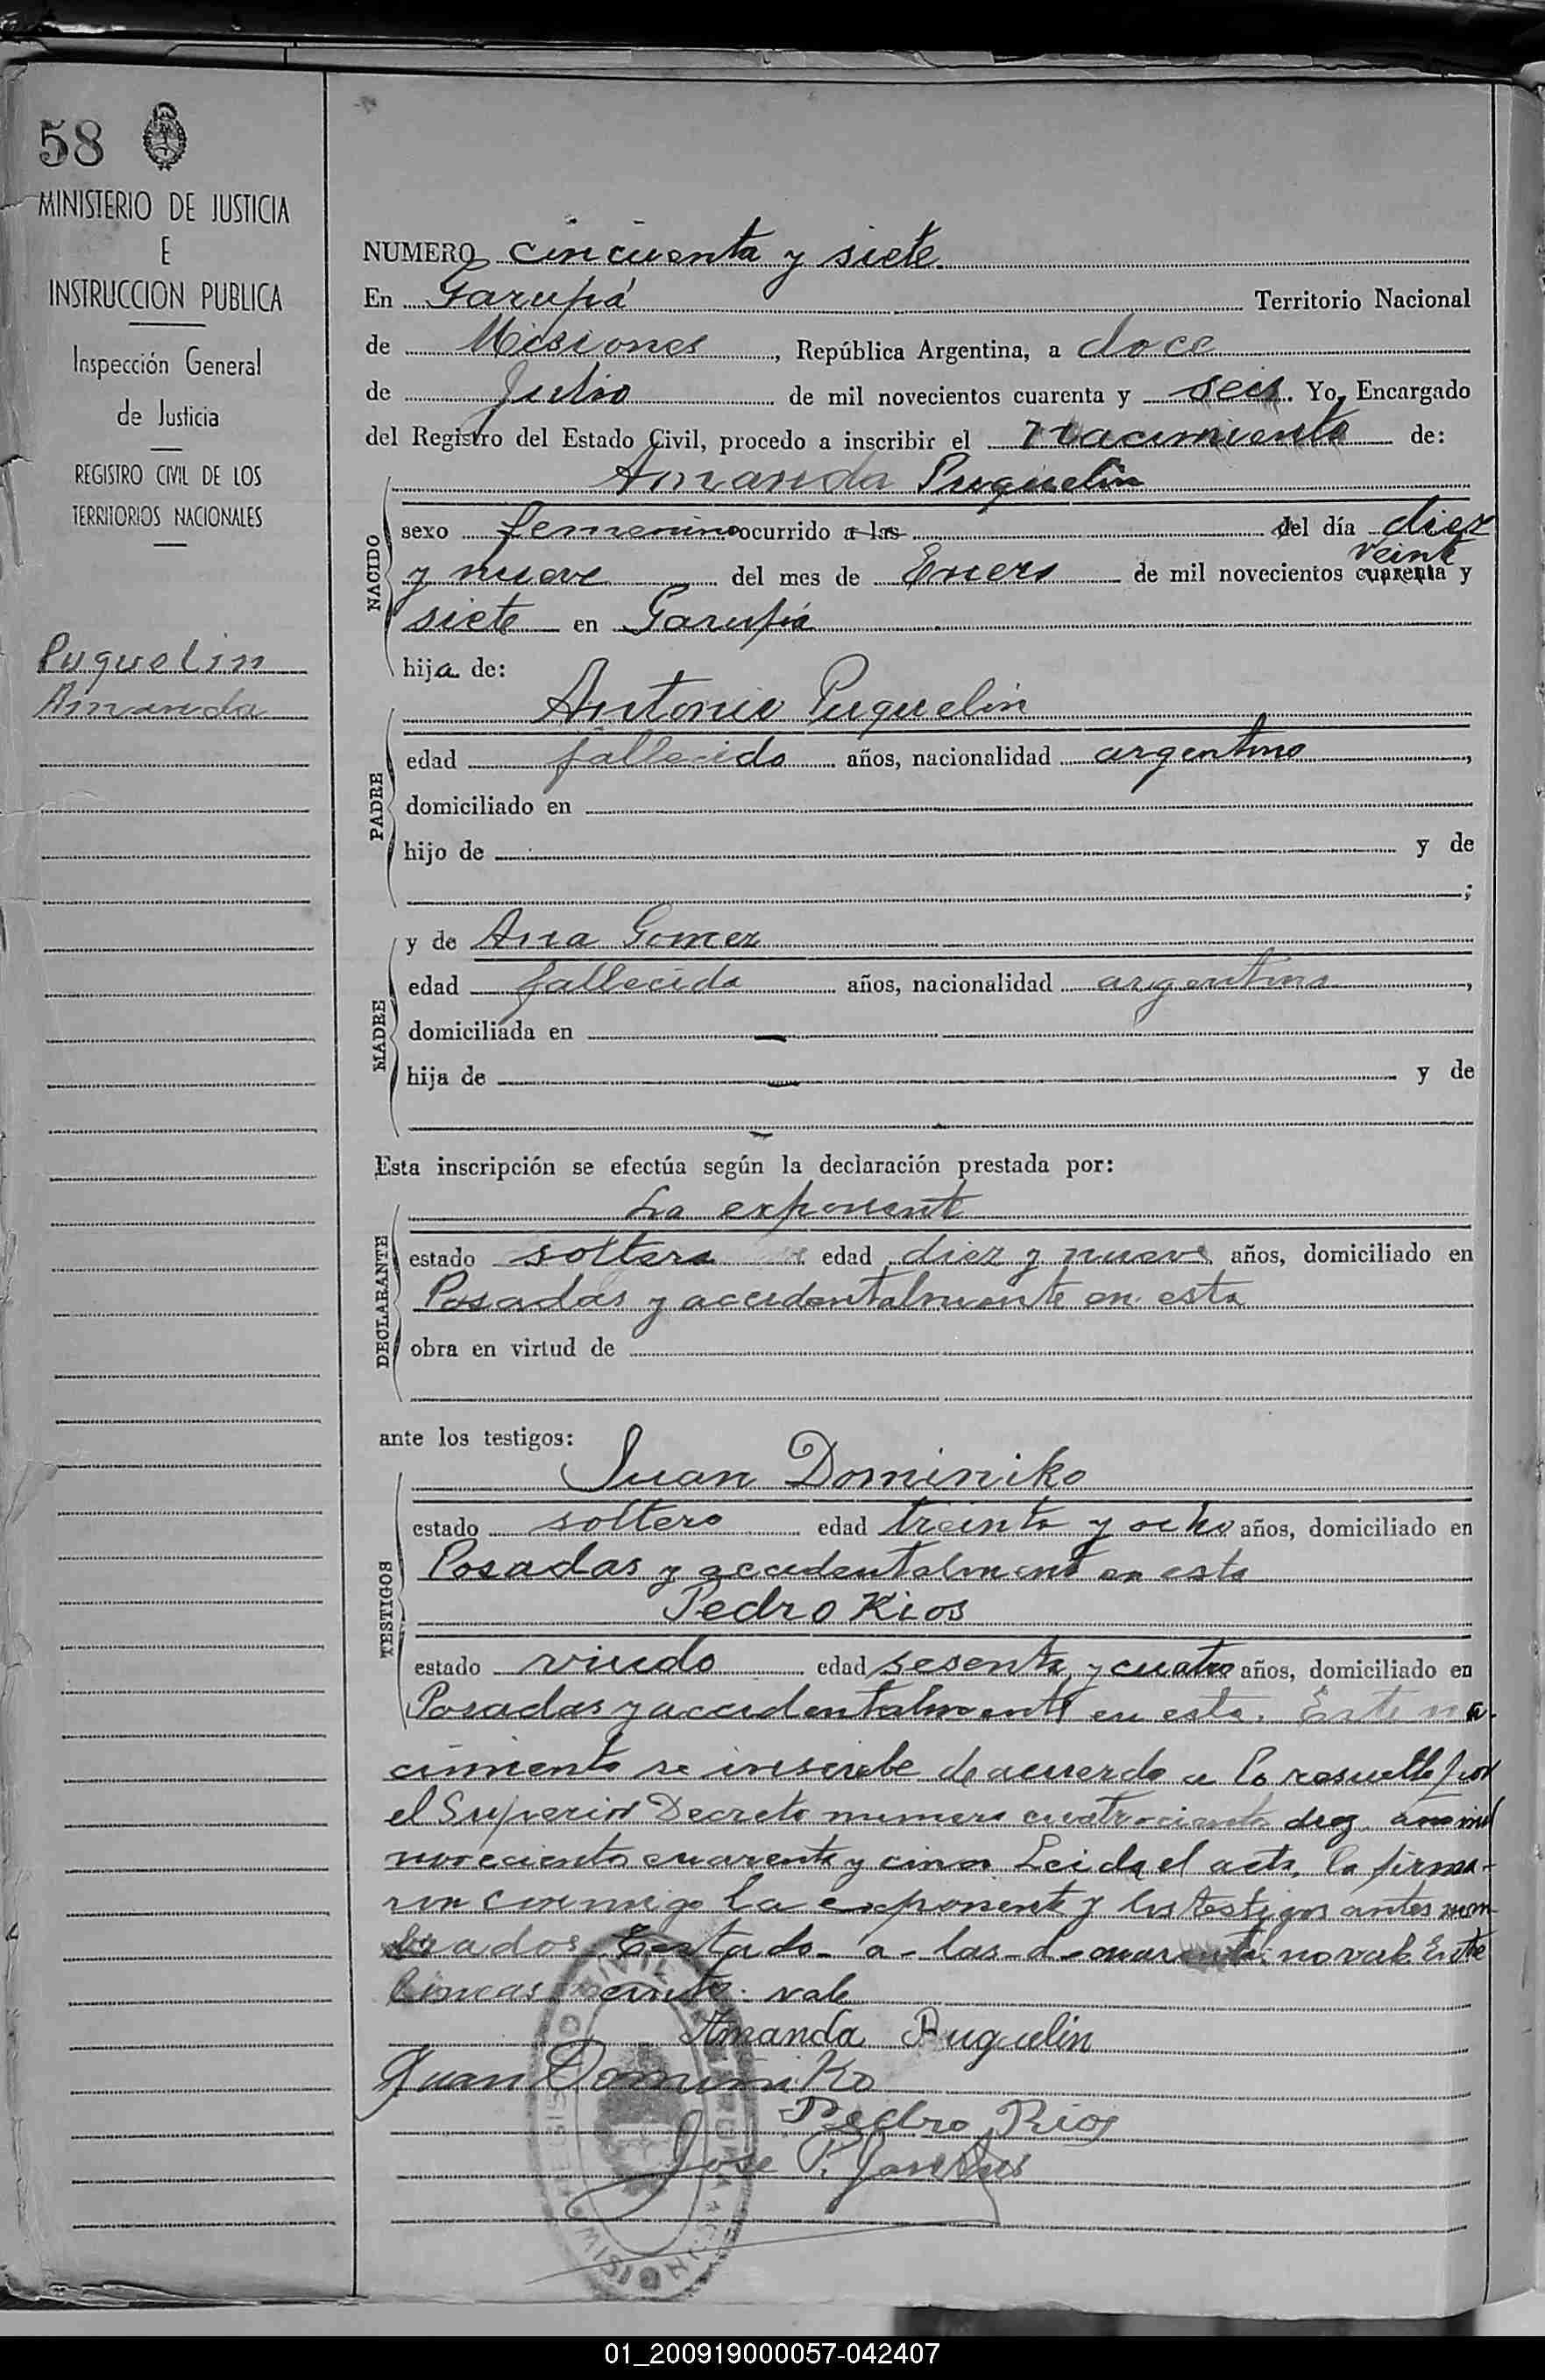 58
MINISTERIO DE JUSTICIA
E
INSTRUCCION PUBLICA
Inspección General
de Justicia
REGISTRO CIVIL DE LOS
TERRITORIOS NACIONALES
Puquelin
Amanda
NUMERO cincuenta y siete
En Garupá Territorio Nacional
de Misiones, República Argentina, a doce
de Julio de mil novecientos cuarenta y seis. Yo, Encargado
del Registro del Estado Civil, procedo a inscribir el nacimiento de:
Amanda Puquelin
NACIDO
sexo femenino ocurrido a las del día diez
veinte
y nueve del mes de Enero de mil novecientos cuarenta y
siete en Garupá
hija de:
PADRE
Antonio Puquelin
edad fallecido años, nacionalidad argentino,
domiciliado en
hijo de y de
;
MADRE
y de Ana Gomez
edad fallecida años, nacionalidad argentina,
domiciliada en
hija de y de
Esta inscripción se efectúa según la declaración prestada por:
DECLARANTE
La exponente
estado soltera edad diez y nueve años, domiciliado en
Posadas y accidentalmente en esta
obra en virtud de
ante los testigos:
TESTIGOS
Juan Dominiko
estado soltero edad treinta y ocho años, domiciliado en
Posadas y accidentalmente en esta
Pedro Rios
estado viudo edad sesenta y cuatro años, domiciliado en
Posadas y accidentalmente en esta. Este na-
cimiento se inscribe de acuerdo a lo resuelto por
el Superior Decreto numero cuatrociento diez año mil
noveciento cuarenta y cinco Leida el acta, la firma-
ron conmigo la exponente y los testigos antes nom-
brados Testado-a-las-d-cuarenta: no vale. Entre
lineas veinte: vale
Amanda Puquelin
Juan Dominiko
Pedro Rios
Jose
01_200919000057-042407